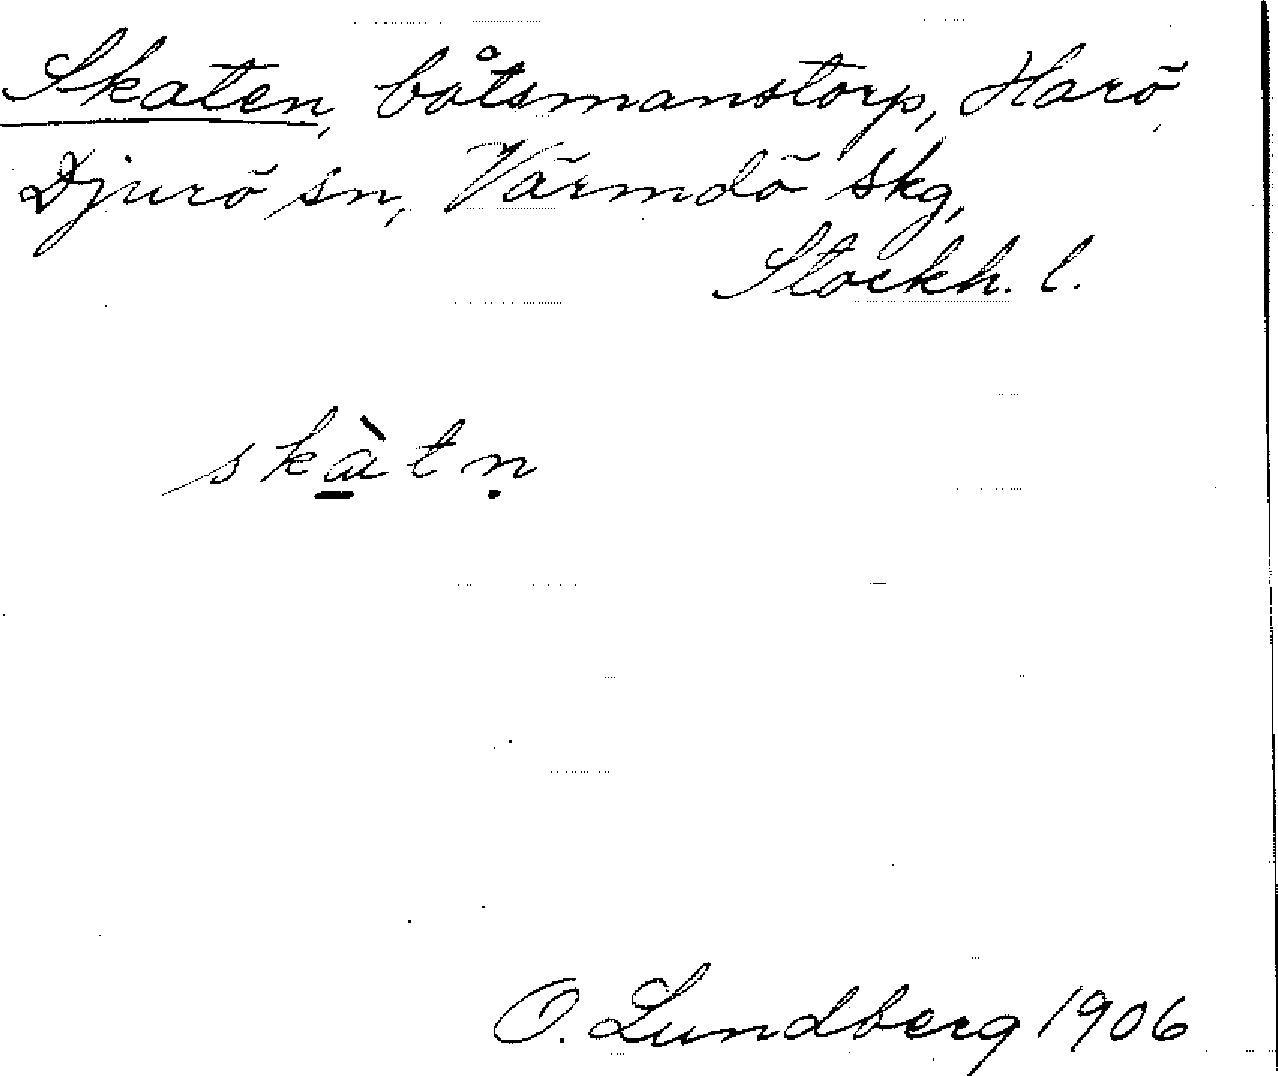 Skaten, båtsmanstorp, Harö,
Djurö sn, Värmdö skg,
Stockh. l.
skà̱tṇ
O. Lundberg 1906